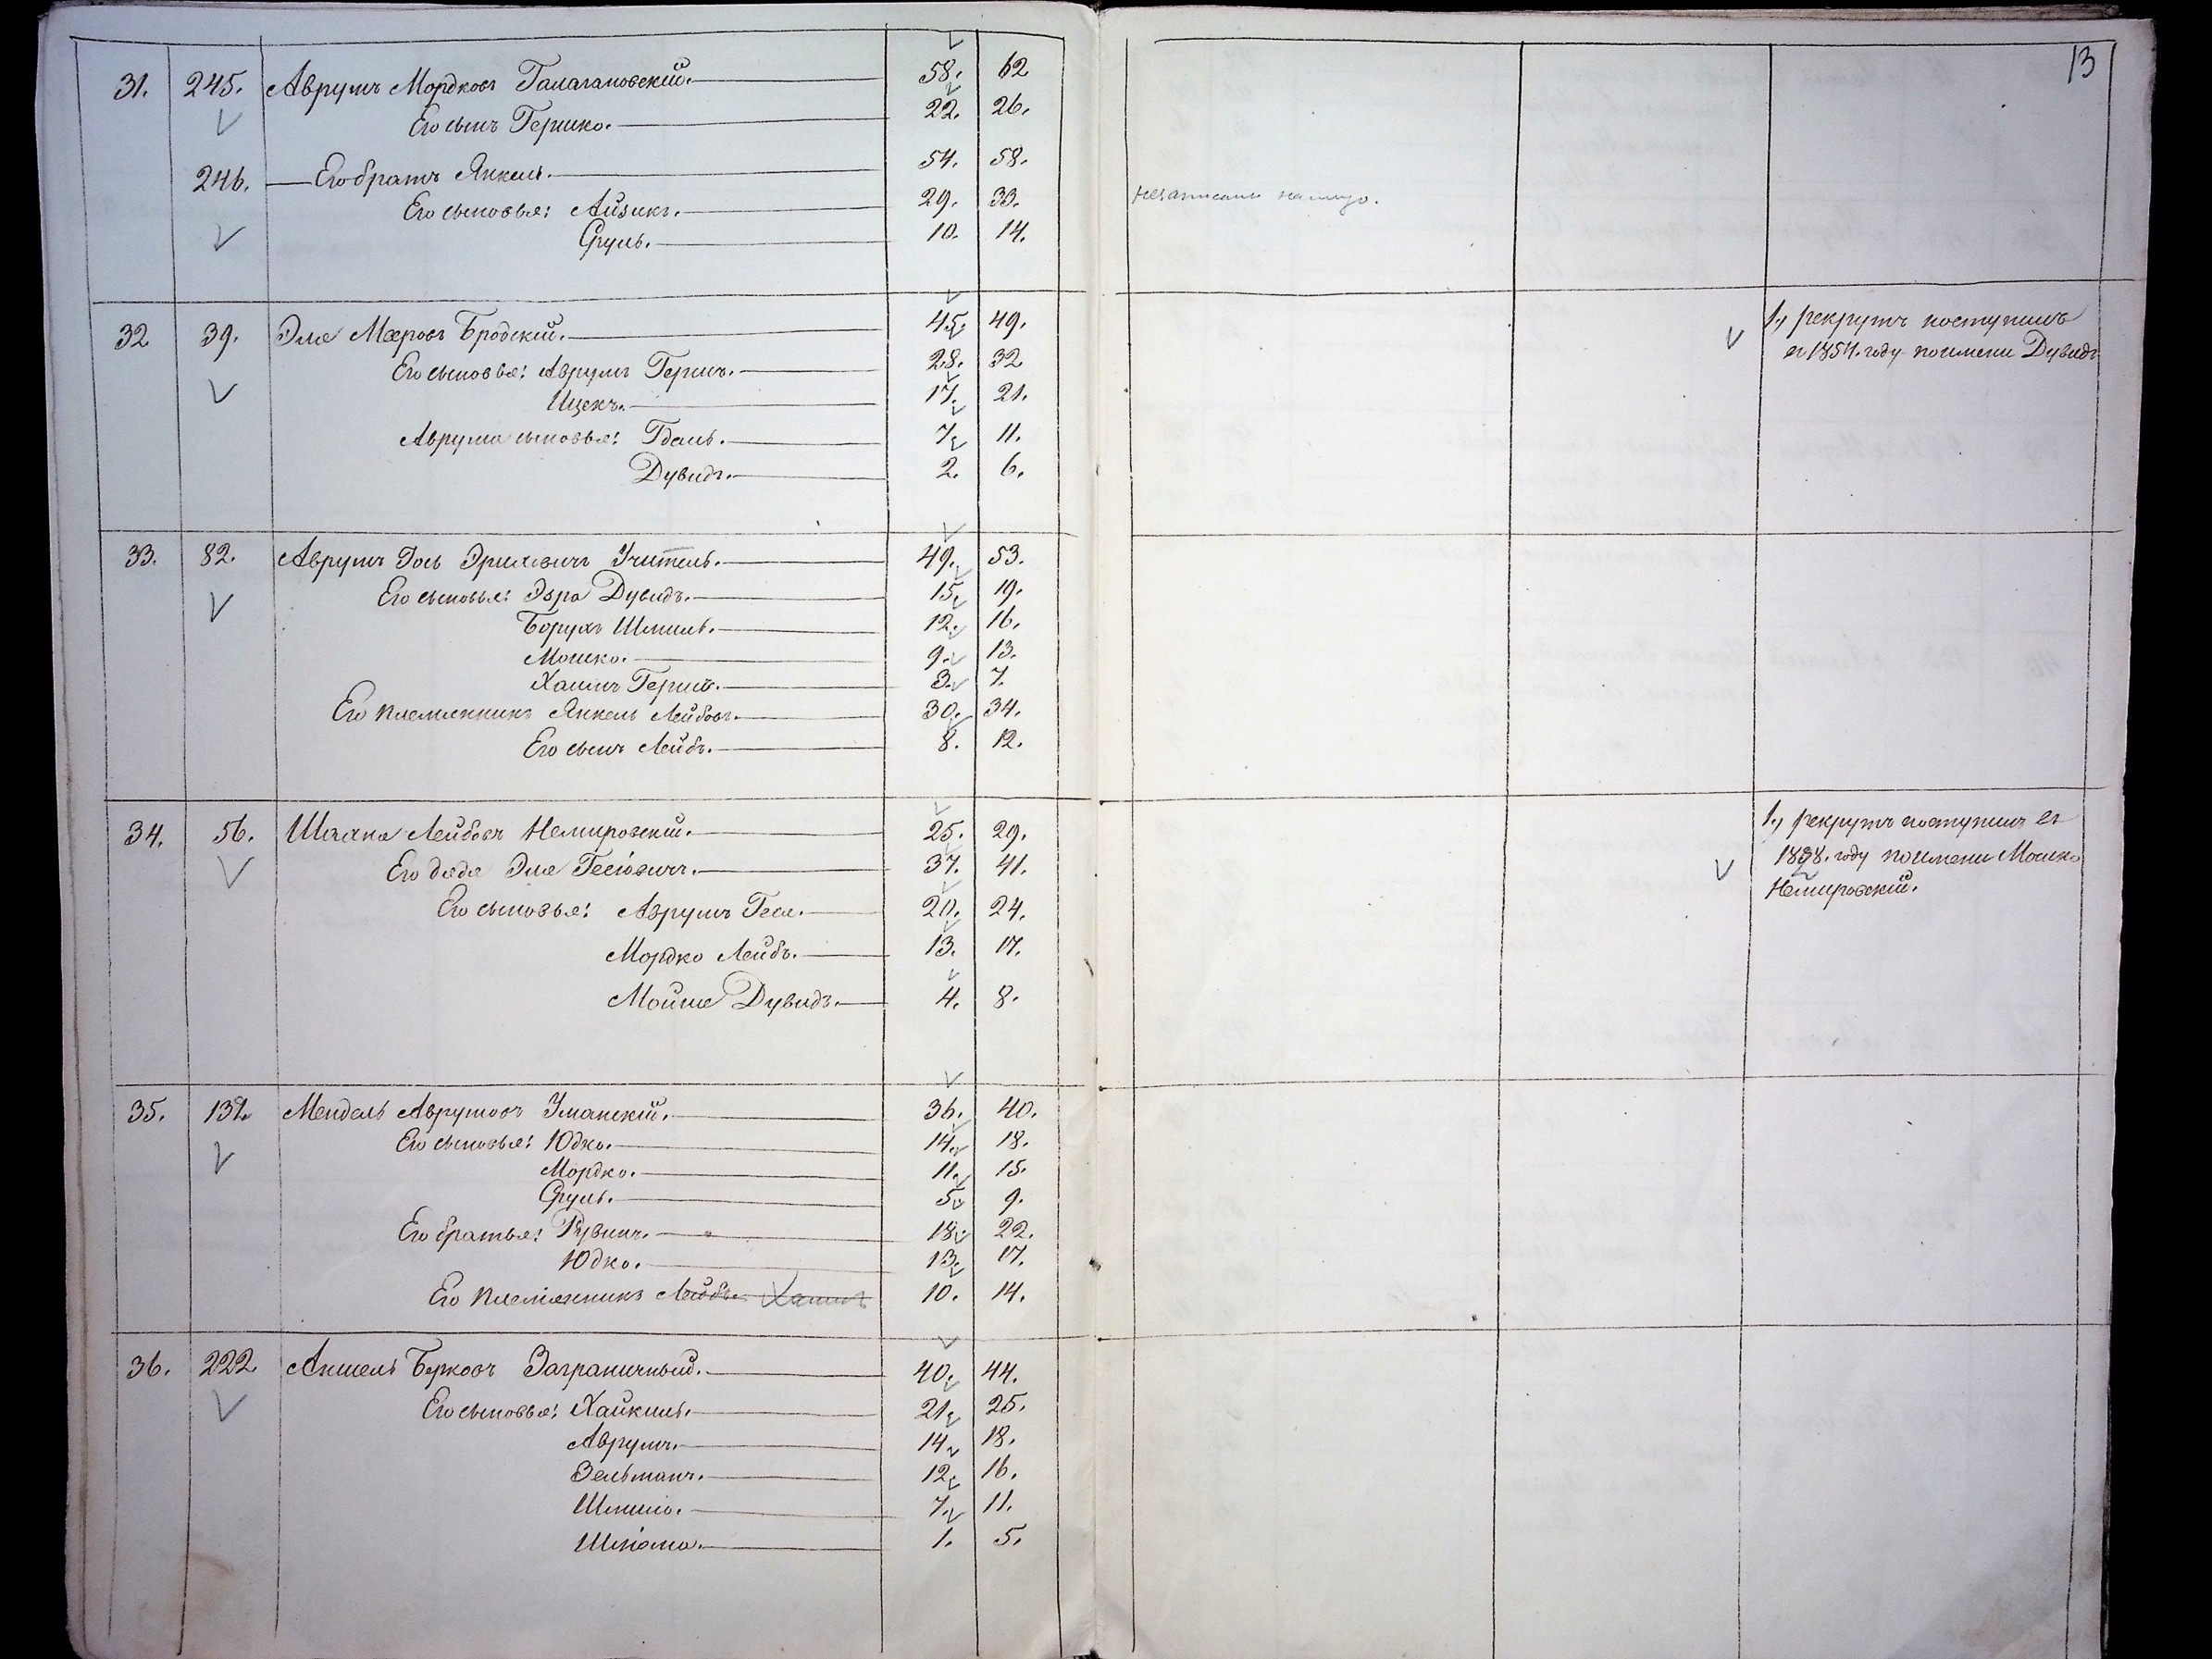 13
31. 245. Аврумъ Мордковъ Галагановскій. 58. 62
Его сынъ Гершко. 22. 26.
246. Его братъ Янкель. 54. 58.
Его сыновья: Айзикъ. 29. 33.
Сруль. 10. 14.
32 39. Эля Мееровъ Бродскій. 45. 49. 1, рекрутъ поступилъ
Его сыновья: Аврумъ Гершъ. 28. 32 въ 1854. году по имени Дувидъ
Ицекъ. 17. 21.
Аврума сыновья: Гдаль. 7. 11.
Дувидъ. 2. 6.
33. 82. Аврумъ Іось Учитель. 49. 53.
Его сыновья: Эзра Дувидъ. 15. 19.
Борухъ Шмиль. 12. 16.
Мошко. 9. 13.
Хаимъ Гершъ. 3. 7.
Его племянникъ Янкель Лейбовъ. 30. 34.
Его сынъ Лейбъ. 8. 12.
34. 56. Лейбовъ Немировскій. 25. 29. 1, рекрутъ поступилъ въ
Его дядя Эля Гесіовичъ. 37. 41. году по имени Мошко
Немировскій.
Его сыновья: Аврумъ Геся. 20. 24.
Мордко Лейбъ. 13. 17.
Мойше Дувидъ. 4. 8.
35. 137. Мендель Аврумовъ Уманскій. 36. 40.
Его сыновья: Юдко. 14. 18.
Мордко. 11. 15.
Сруль. 5. 9.
Его братья: Рувинъ. 18. 22.
Юдко. 13. 17.
Его племянникъ Лейбъ. Хаимъ 10. 14.
36. 222 Аншель Берковъ Заграничный. 40. 44.
Его сыновья: Хайкиль. 21. 25.
Аврумъ. 14. 18.
Зельманъ. 12. 16.
Шмило. 7. 11.
Шліома. 1. 5.